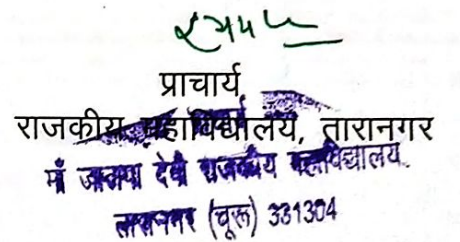 प्राचार्य
राजकीय महाविद्यालय, तारानगर
माँ जालपा देवी राजकीय महाविद्यालय
तारानगर (चूरू) 331304